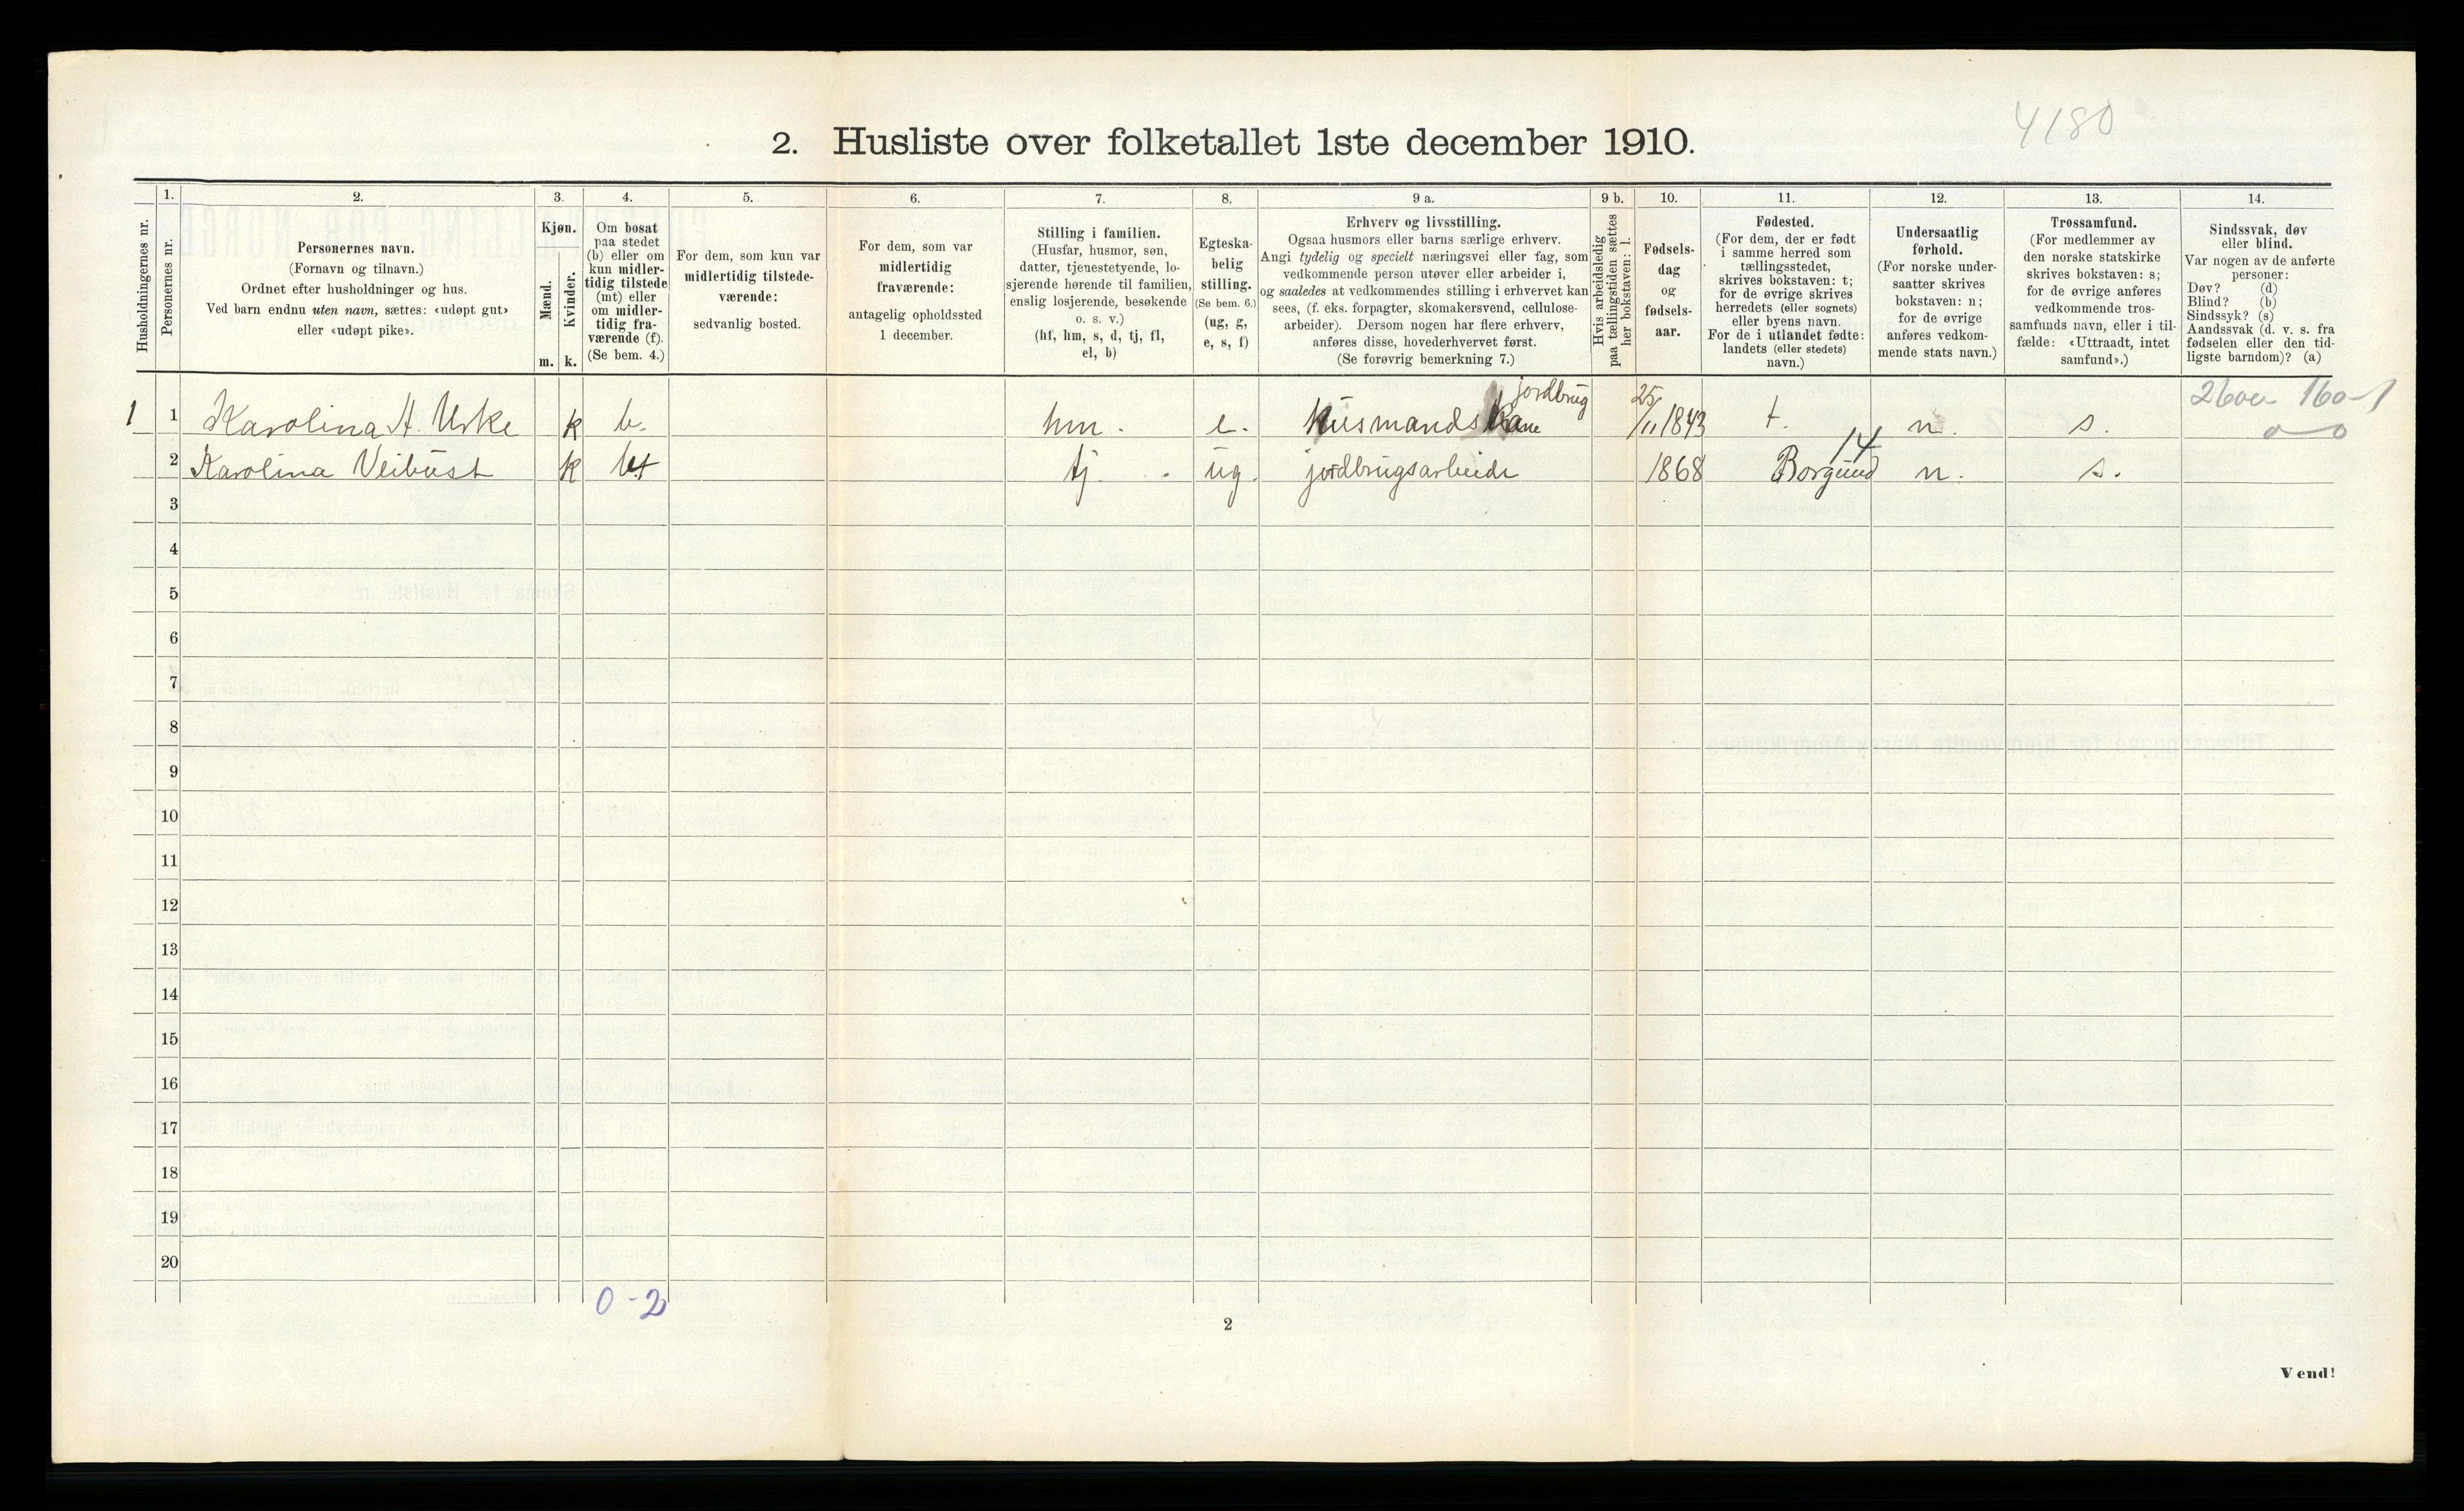 4180
2. Husliste over folketallet 1ste december 1910.
Husholdningernes nr.
1.
Personernes nr.
2.
Personernes navn.
(Fornavn og tilnavn.)
Ordnet efter husholdninger og hus.
Ved barn endnu uten navn, sættes: «udøpt gut»
eller «udøpt pike».
3.
Kjøn.
Mænd.
Kvinder.
m. k.
4.
Om bosat
paa stedet
(b) eller om
kun midler-
tidig tilstede
(mt) eller
om midler-
tidig fra-
værende (f).
(Se bem. 4.)
5.
For dem, som kun var
midlertidig tilstede-
værende:
sedvanlig bosted.
6.
For dem, som var
midlertidig
fraværende:
antagelig opholdssted
1 december.
7.
Stilling i familien.
(Husfar, husmor, søn,
datter, tjenestetyende, lo-
sjerende hørende til familien,
enslig losjerende, besøkende
o. s. v.)
(hf, hm, s, d, tj, fl,
el, b)
8.
Egteska-
belig
stilling.
(Se bem. 6.)
(ug, g,
e, s, f)
9 a.
Erhverv og livsstilling.
Ogsaa husmors eller barns særlige erhverv.
Angi tydelig og specielt næringsvei eller fag, som
vedkommende person utøver eller arbeider i,
og saaledes at vedkommendes stilling i erhvervet kan
sees, (f. eks. forpagter, skomakersvend, cellulose-
arbeider). Dersom nogen har flere erhverv,
anføres disse, hovederhvervet først.
(Se forøvrig bemerkning 7.)
9 b.
Hvis arbeidsledig
paa tællingstiden sættes
her bokstaven: l.
10.
Fødsels-
dag
og
fødsels-
aar.
11.
Fødested.
(For dem, der er født
i samme herred som
tællingsstedet,
skrives bokstaven: t;
for de øvrige skrives
herredets (eller sognets)
eller byens navn.
For de i utlandet fødte:
landets (eller stedets)
navn.)
12.
Undersaatlig
forhold.
(For norske under-
saatter skrives
bokstaven: n;
for de øvrige
anføres vedkom-
mende stats navn.)
13.
Trossamfund.
(For medlemmer av
den norske statskirke
skrives bokstaven: s;
for de øvrige anføres
vedkommende tros-
samfunds navn, eller i til-
fælde: «Uttraadt, intet
samfund».)
14.
Sindssvak, døv
eller blind.
Var nogen av de anførte
personer:
Døv? (d)
Blind? (b)
Sindssyk? (s)
Aandssvak (d. v. s. fra
fødselen eller den tid-
ligste barndom)? (a)
1 1 Karolina A. Urke k b. hm. e. Husmandskane jordbrug 25/11 1843 t. n. s.
0—0
14
2 Karolina Veibust k bt tj. ug. jordbrugsarbeide 1868 Borgund n. s.
3
4
5
6
7
8
9
10
11
12
13
14
15
16
17
18
19
20
0 - 2
2
Vend!